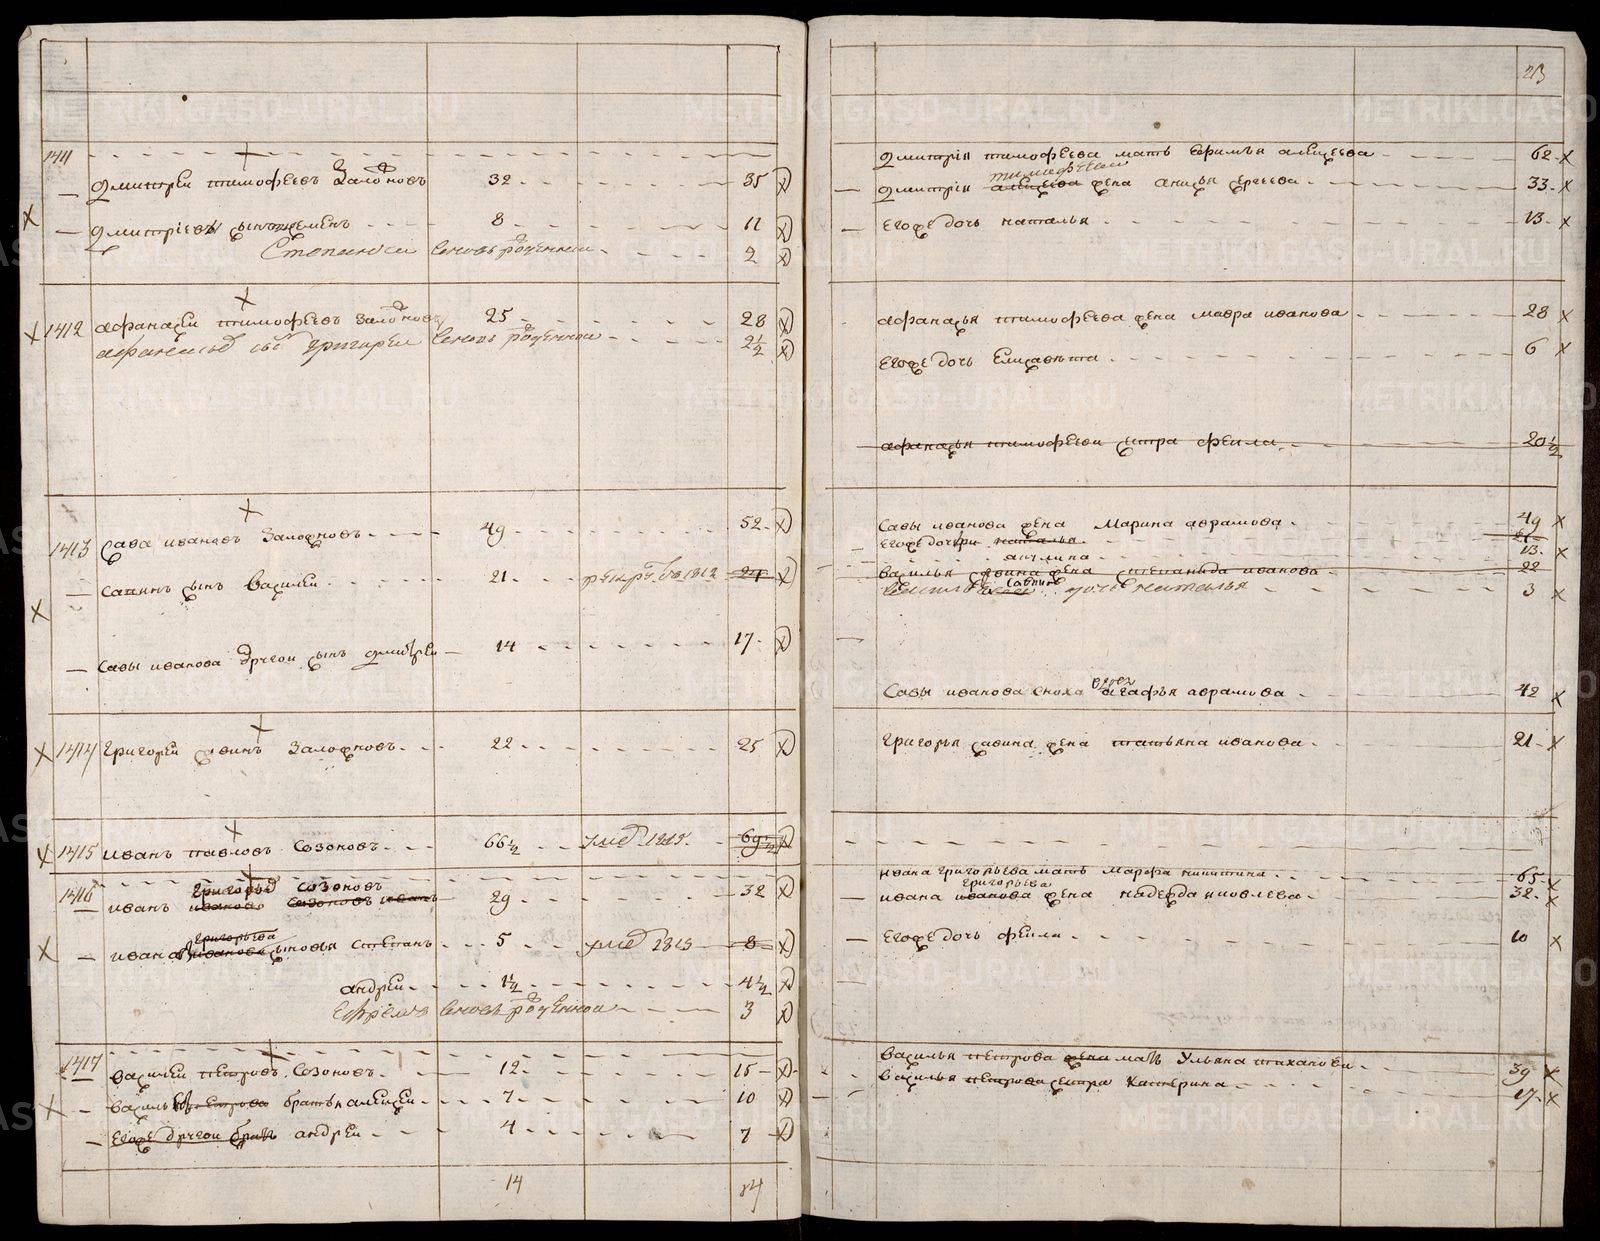 213
1411
Дмитрей Тимофеевъ Заложновъ 32 35
Дмитріевъ сынъ Семенъ 8 11
Степанъ вновь рожденной 2
1412 Афанасей Тимофеевъ Заложновъ 25 28
Афанасьевъ сынъ Григорей вновь рожденной 2½
1413 Сава Ивановъ Заложновъ 49 52
Савинъ сынъ Василей 21 рекру въ 1812 24
Савы Иванова другой сынъ Дмитрей 14 17
1414 Григорей Савинъ Заложновъ 22 25
1415 Иванъ Павловъ Созоновъ 66½ умеръ 1815 69½
1416 Григорьевъ Созоновъ
Иванъ Ивановъ Созоновъ Иванъ 29 32
Григорьева
Ивана Иванова сыновья Степанъ 5 умеръ 1813 8
Андрей 1½ 4½
Ефремъ вновь рожденной 3
1417
Василей Петровъ Созоновъ 12 15
Василья Петрова братья Алексей 7 10
Егоже другой братъ Андрей 4 7
14 14
Дмитрія Тимофеева мать Ефимья Алексеева 62
Тимофеева
Дмитрія Алексеева жена Анисья Сергеева 33
Егоже дочь Наталья 13
Афанасья Тимофеева жена Мавра Иванова 28
Егоже дочь Елисавета 6
Афанасья Тимофеева сестра Феила 20½
Савы Иванова жена Марина Аврамова 49
Егоже дочери Наталья 21
Акулина 13
Василья Савина жена Степанида Иванова 22
Савина
Василья дочь Наталья 3
Савы Иванова сноха вдова Агафья Аврамова 42
Григорья Савина жена Татьяна Иванова 21
Ивана Григорьева мать Марфа Никитина 65
Григорьева
Ивана Иванова жена Надежда Яковлева 32
Егоже дочь Феила 10
Василья Петрова жена мать Ульяна 39
Василья Петрова сестра Катерина 17
METRIKI.GASO-URAL.RU